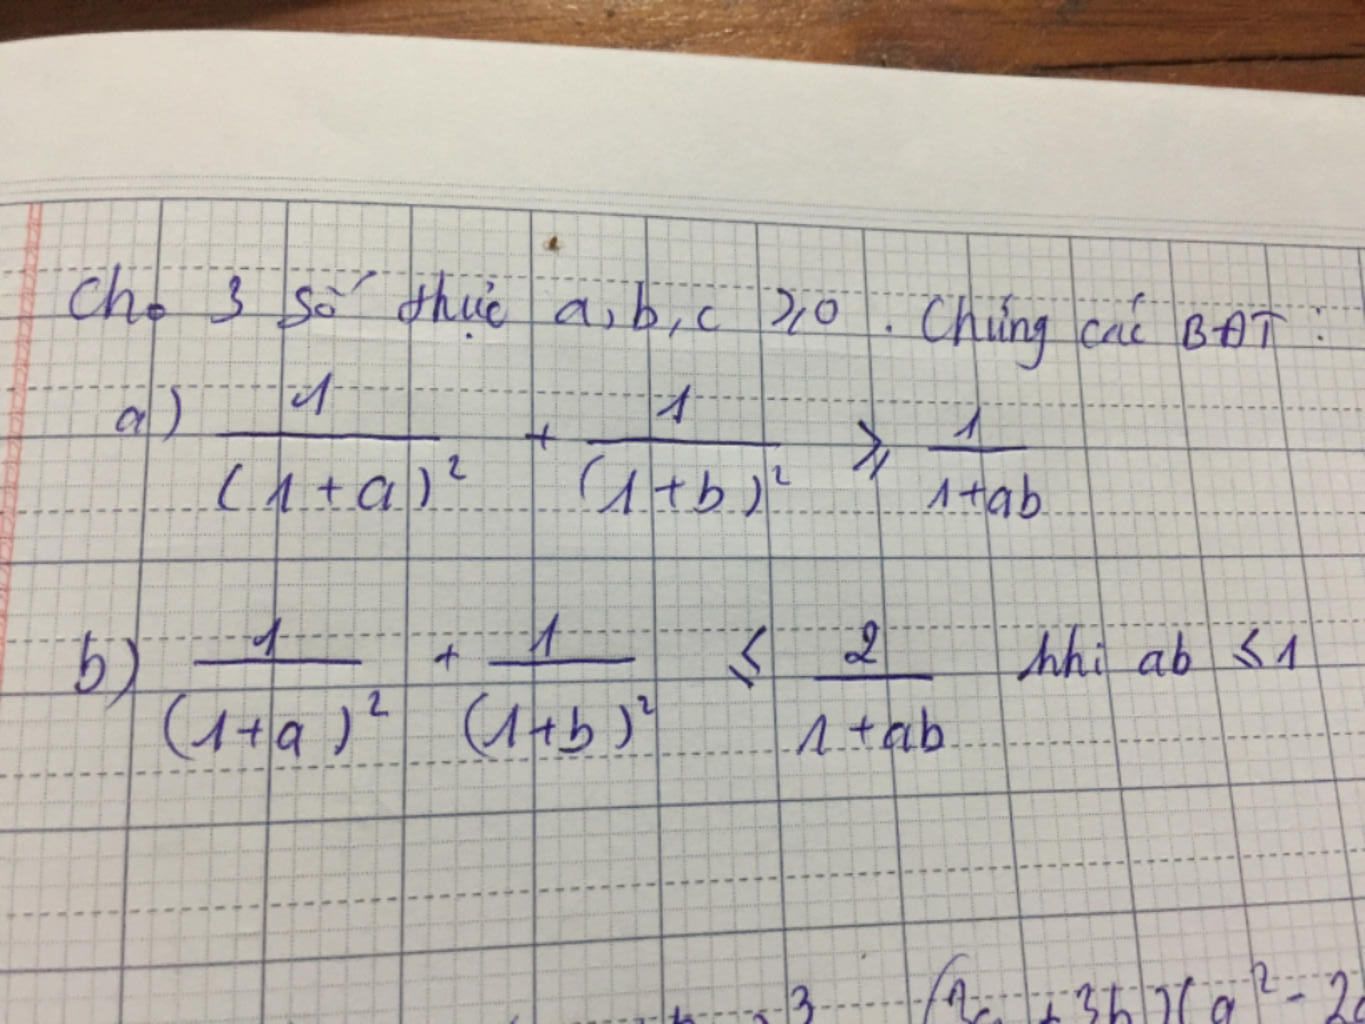 Cho 3 số thực a, b, c ≥ 0. Chứng các BĐT:
a) 1/(1+a)² + 1/(1+b)² ≥ 1/(1+ab)
b) 1/(1+a)² + 1/(1+b)² ≤ 2/(1+ab) khi ab ≤ 1